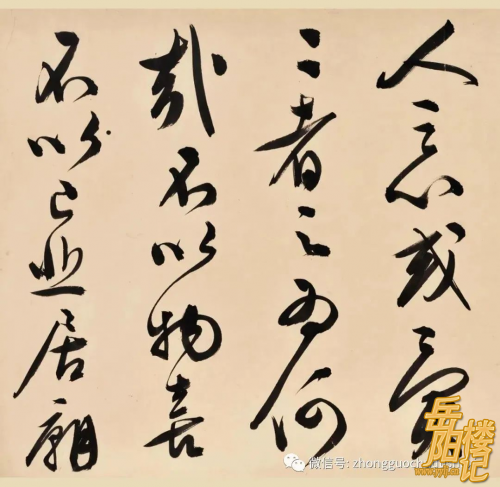 人之心或異
二者之為何
哉不以物喜
不以己悲居廟
岳阳楼记
微信号: zhongguoc